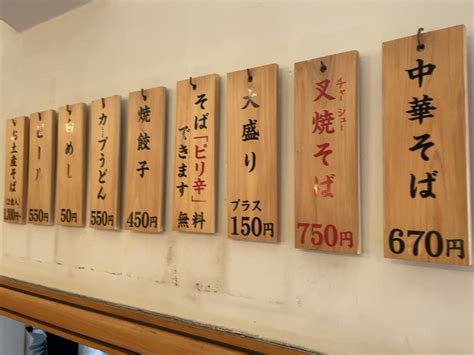 中華そば
670円
チャーシュー
叉焼そば
750円
大盛り
プラス
150円
そば「ピリ辛」
できます
無料
焼餃子
450円
カプうどん
550円
白めし
50円
ビール
550円
お土産そば